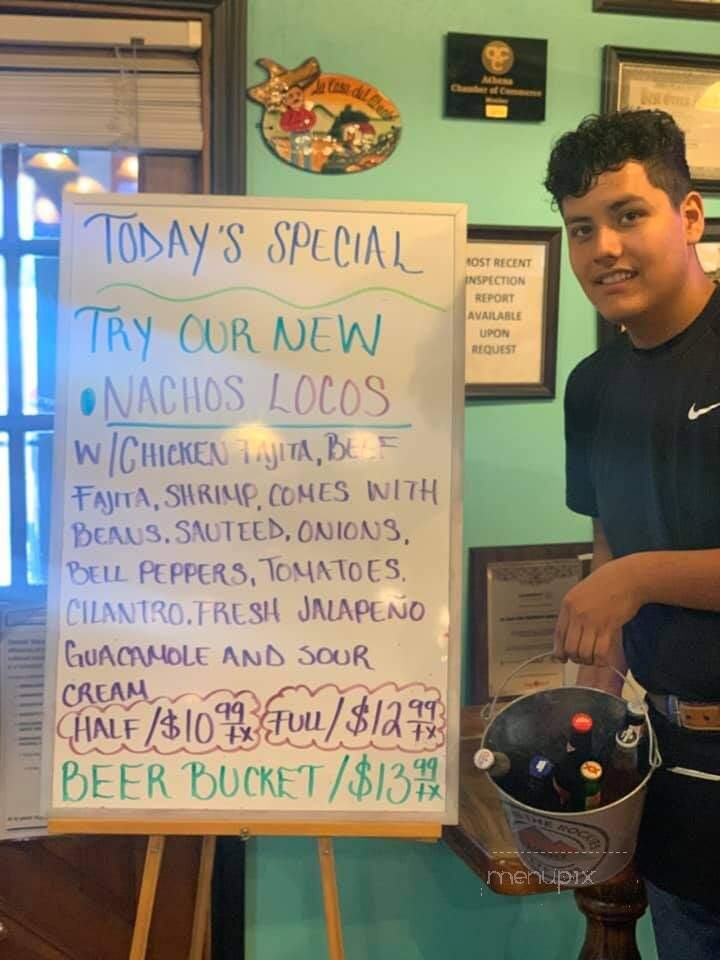 La Casa del
Athens
Chamber of Commerce
Member
TODAY'S SPECIAL
TRY OUR NEW
• NACHOS LOCOS
W/CHICKEN FAJITA, BEEF
FAJITA, SHRIMP, COMES WITH
BEANS. SAUTEED. ONIONS,
BELL PEPPERS, TOMATOES.
CILANTRO. FRESH JALAPEÑO
GUACAMOLE AND SOUR
CREAM
HALF/$10 99 TX FULL/$12 99 TX
BEER BUCKET/$13 99 TX
MOST RECENT
INSPECTION
REPORT
AVAILABLE
UPON
REQUEST
THE
menupix